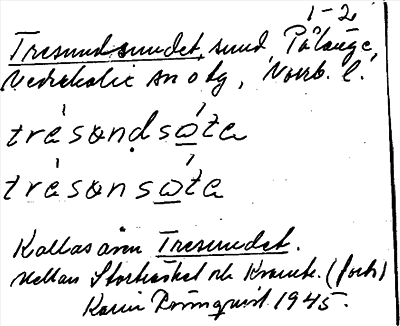 1-2
Tresundsundet, sund, Pålänge,
Nederkalix sn o tg, Norrb. l.
trésandsøta
trésansøta
Kallas även Tresundet.
Mellan Storhåket och Kramb. (forts)
Karin Rönnquist. 1945.